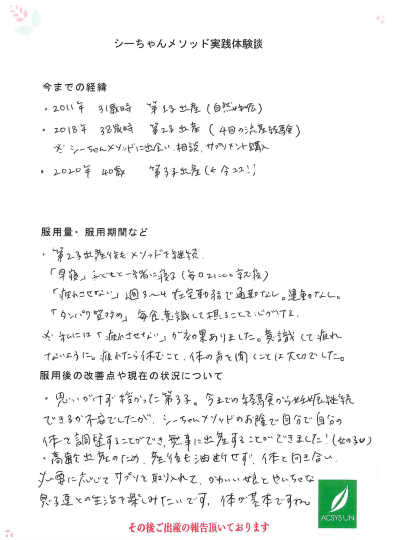 シーちゃんメソッド実践体験談
今までの経緯
・2011年 31歳時 第1子出産(自然妊娠)
・2018年 38歳時 第2子出産(4回の流産経験)
※シーちゃんメソッドに出会い相談、サプリメント購入
・2020年 40歳 第3子出産(←今ココ!)
服用量・服用期間など
・第2子出産後もメソッドを継続.
「早寝」子どもと一緒に寝る(毎日21:00就寝)
「疲れさせない」週3〜4在宅勤務で通勤なし。運動なし。
「タンパク質多め」毎食意識して摂ることを心がける。
※私には「疲れさせない」が効果ありました。意識して疲れ
ないように。疲れたら休むこと、体の声を聞くことは大切でした。
服用後の改善点や現在の状況について
・思いがけず授かった第3子。今までの経験から妊娠継続
できるか不安でしたが、シーちゃんメソッドのお陰で自分で自分の
体を調整することができ、無事に出産することができました!(女の子)
・高齢出産のため、産後も油断せず、体と向き合い、
必要に応じてサプリを取り入れて、かわいい娘とやんちゃな
息子達との生活を楽しみたいです。体が基本ですね。
ACSYSUN
その後ご出産の報告頂いております